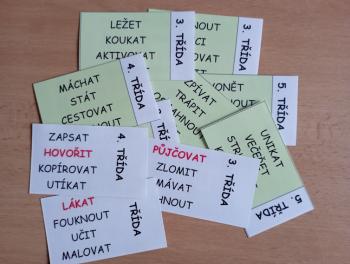 LEŽET
KOUKAT
AKTIVOVAT
3. TŘÍDA
3. TŘÍDA
MÁCHAT
STÁT
CESTOVAT
4. TŘÍDA
TRÁPIT
5. TŘÍDA
ZAPSAT
HOVOŘIT
KOPÍROVAT
UTÍKAT
4. TŘÍDA
PŮJČOVAT
ZLOMIT
MÁVAT
3. TŘÍDA
UNIKAT
VEČEŘET
5. TŘÍDA
LÁKAT
FOUKNOUT
UČIT
MALOVAT
TŘÍDA